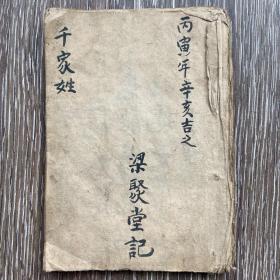 丙寅年辛亥吉之
千家姓
梁聚堂記